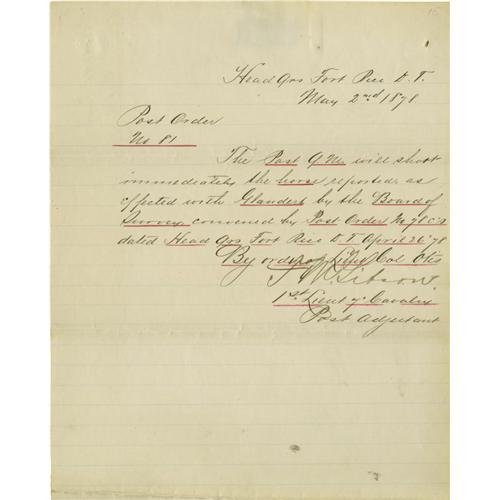 15
Head Qrs Fort Rice D.T.
May 2nd 1878
Post Order
No 81
The Post Q.M. will shoot
immediately the horse reported as
effected with Glanders by the Board of
Survey convened by Post Order No 78 c.s
dated Head Qrs Fort Rice D.T. April 26' 78
By order of Lieut Col Otis
Gibson
1st Lieut 7' Cavalry
Post Adjutant